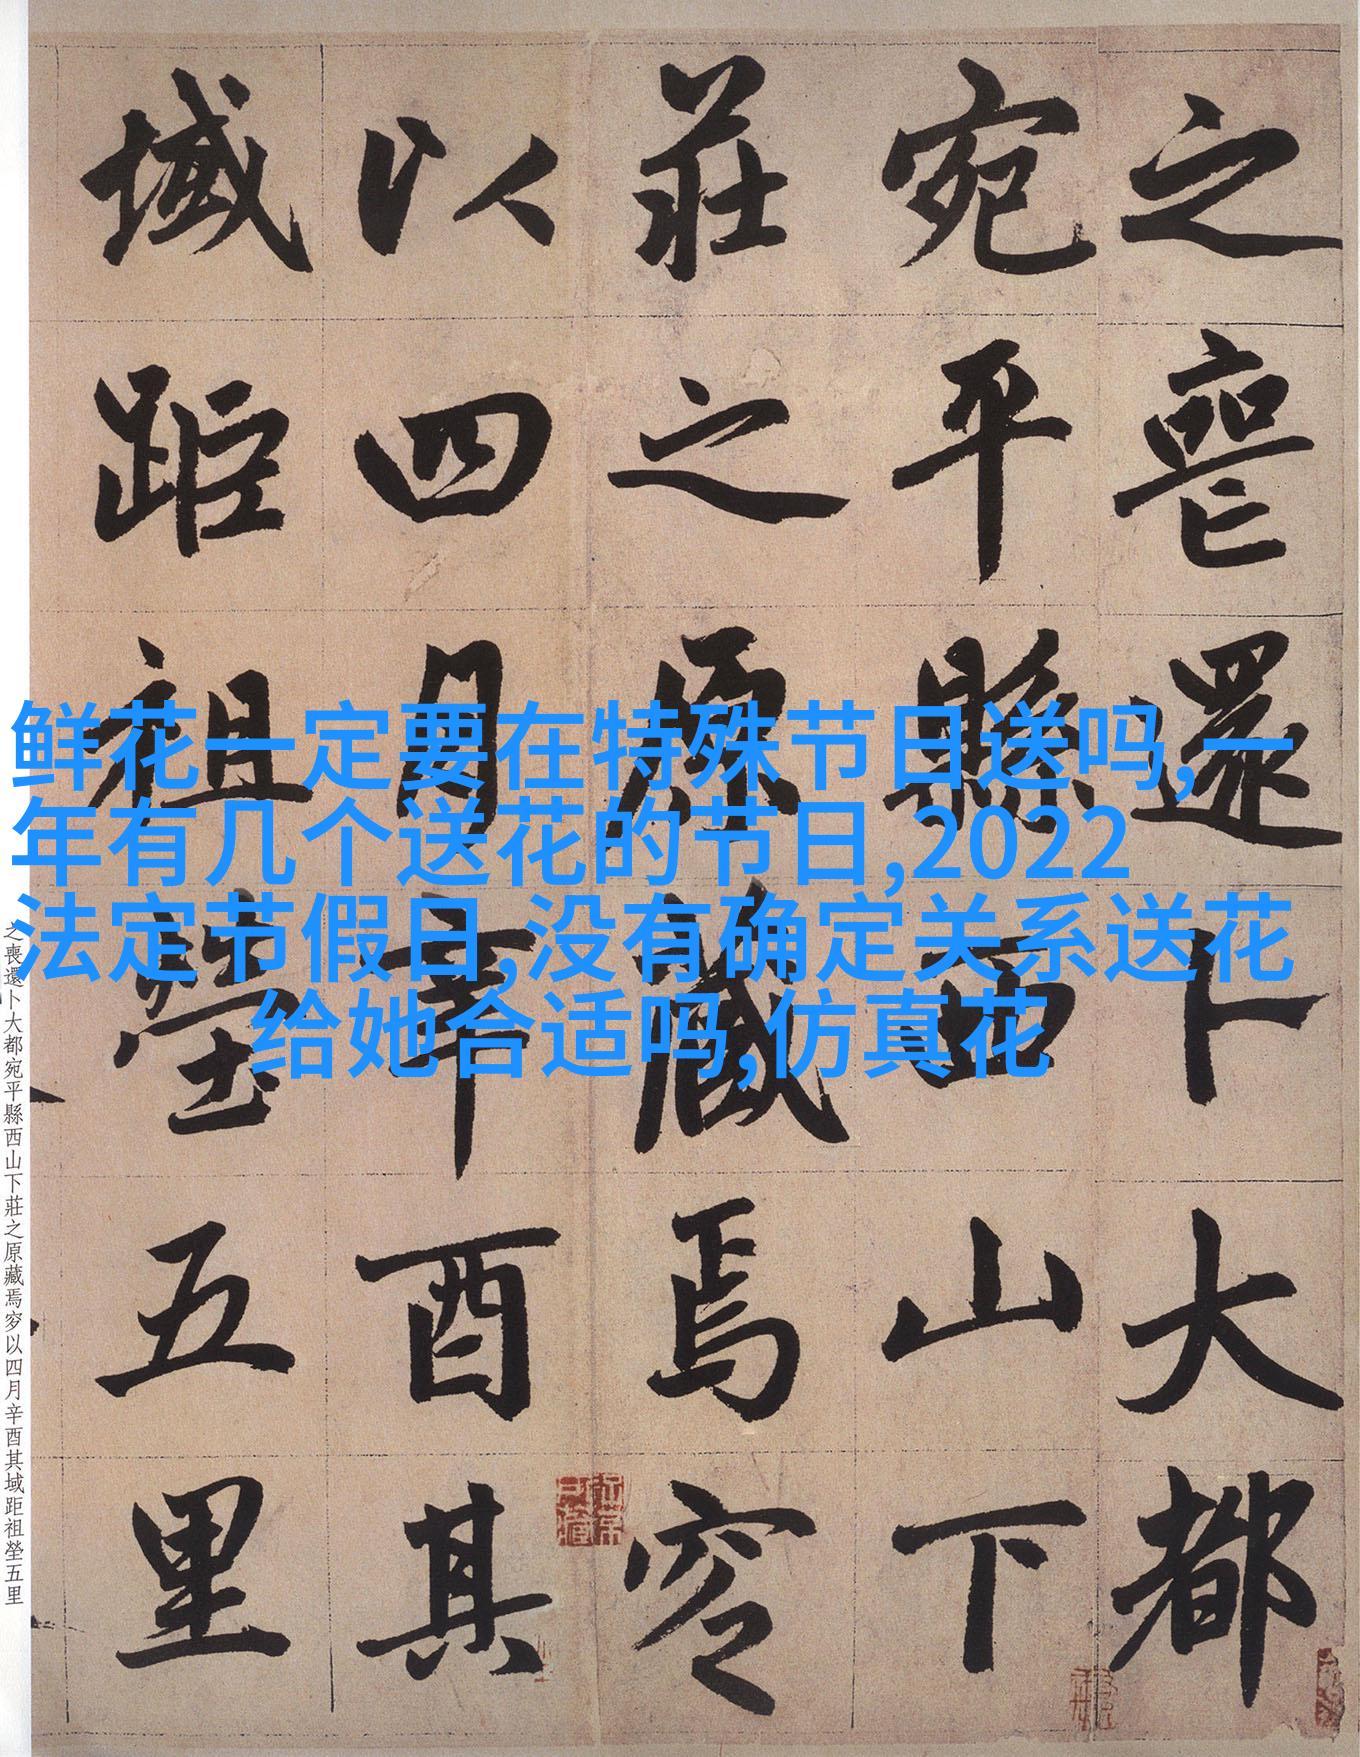 之喪還卜大都
宛平縣西山下
莊之原藏焉穸
以四月辛酉其
域距祖塋五里
鲜花一定要在特殊节日送吗,一
年有几个送花的节日,2022
法定节假日,没有确定关系送花
给她合适吗,仿真花
之喪還卜大都宛平縣西山下莊之原藏焉穸以四月辛酉其域距祖塋五里